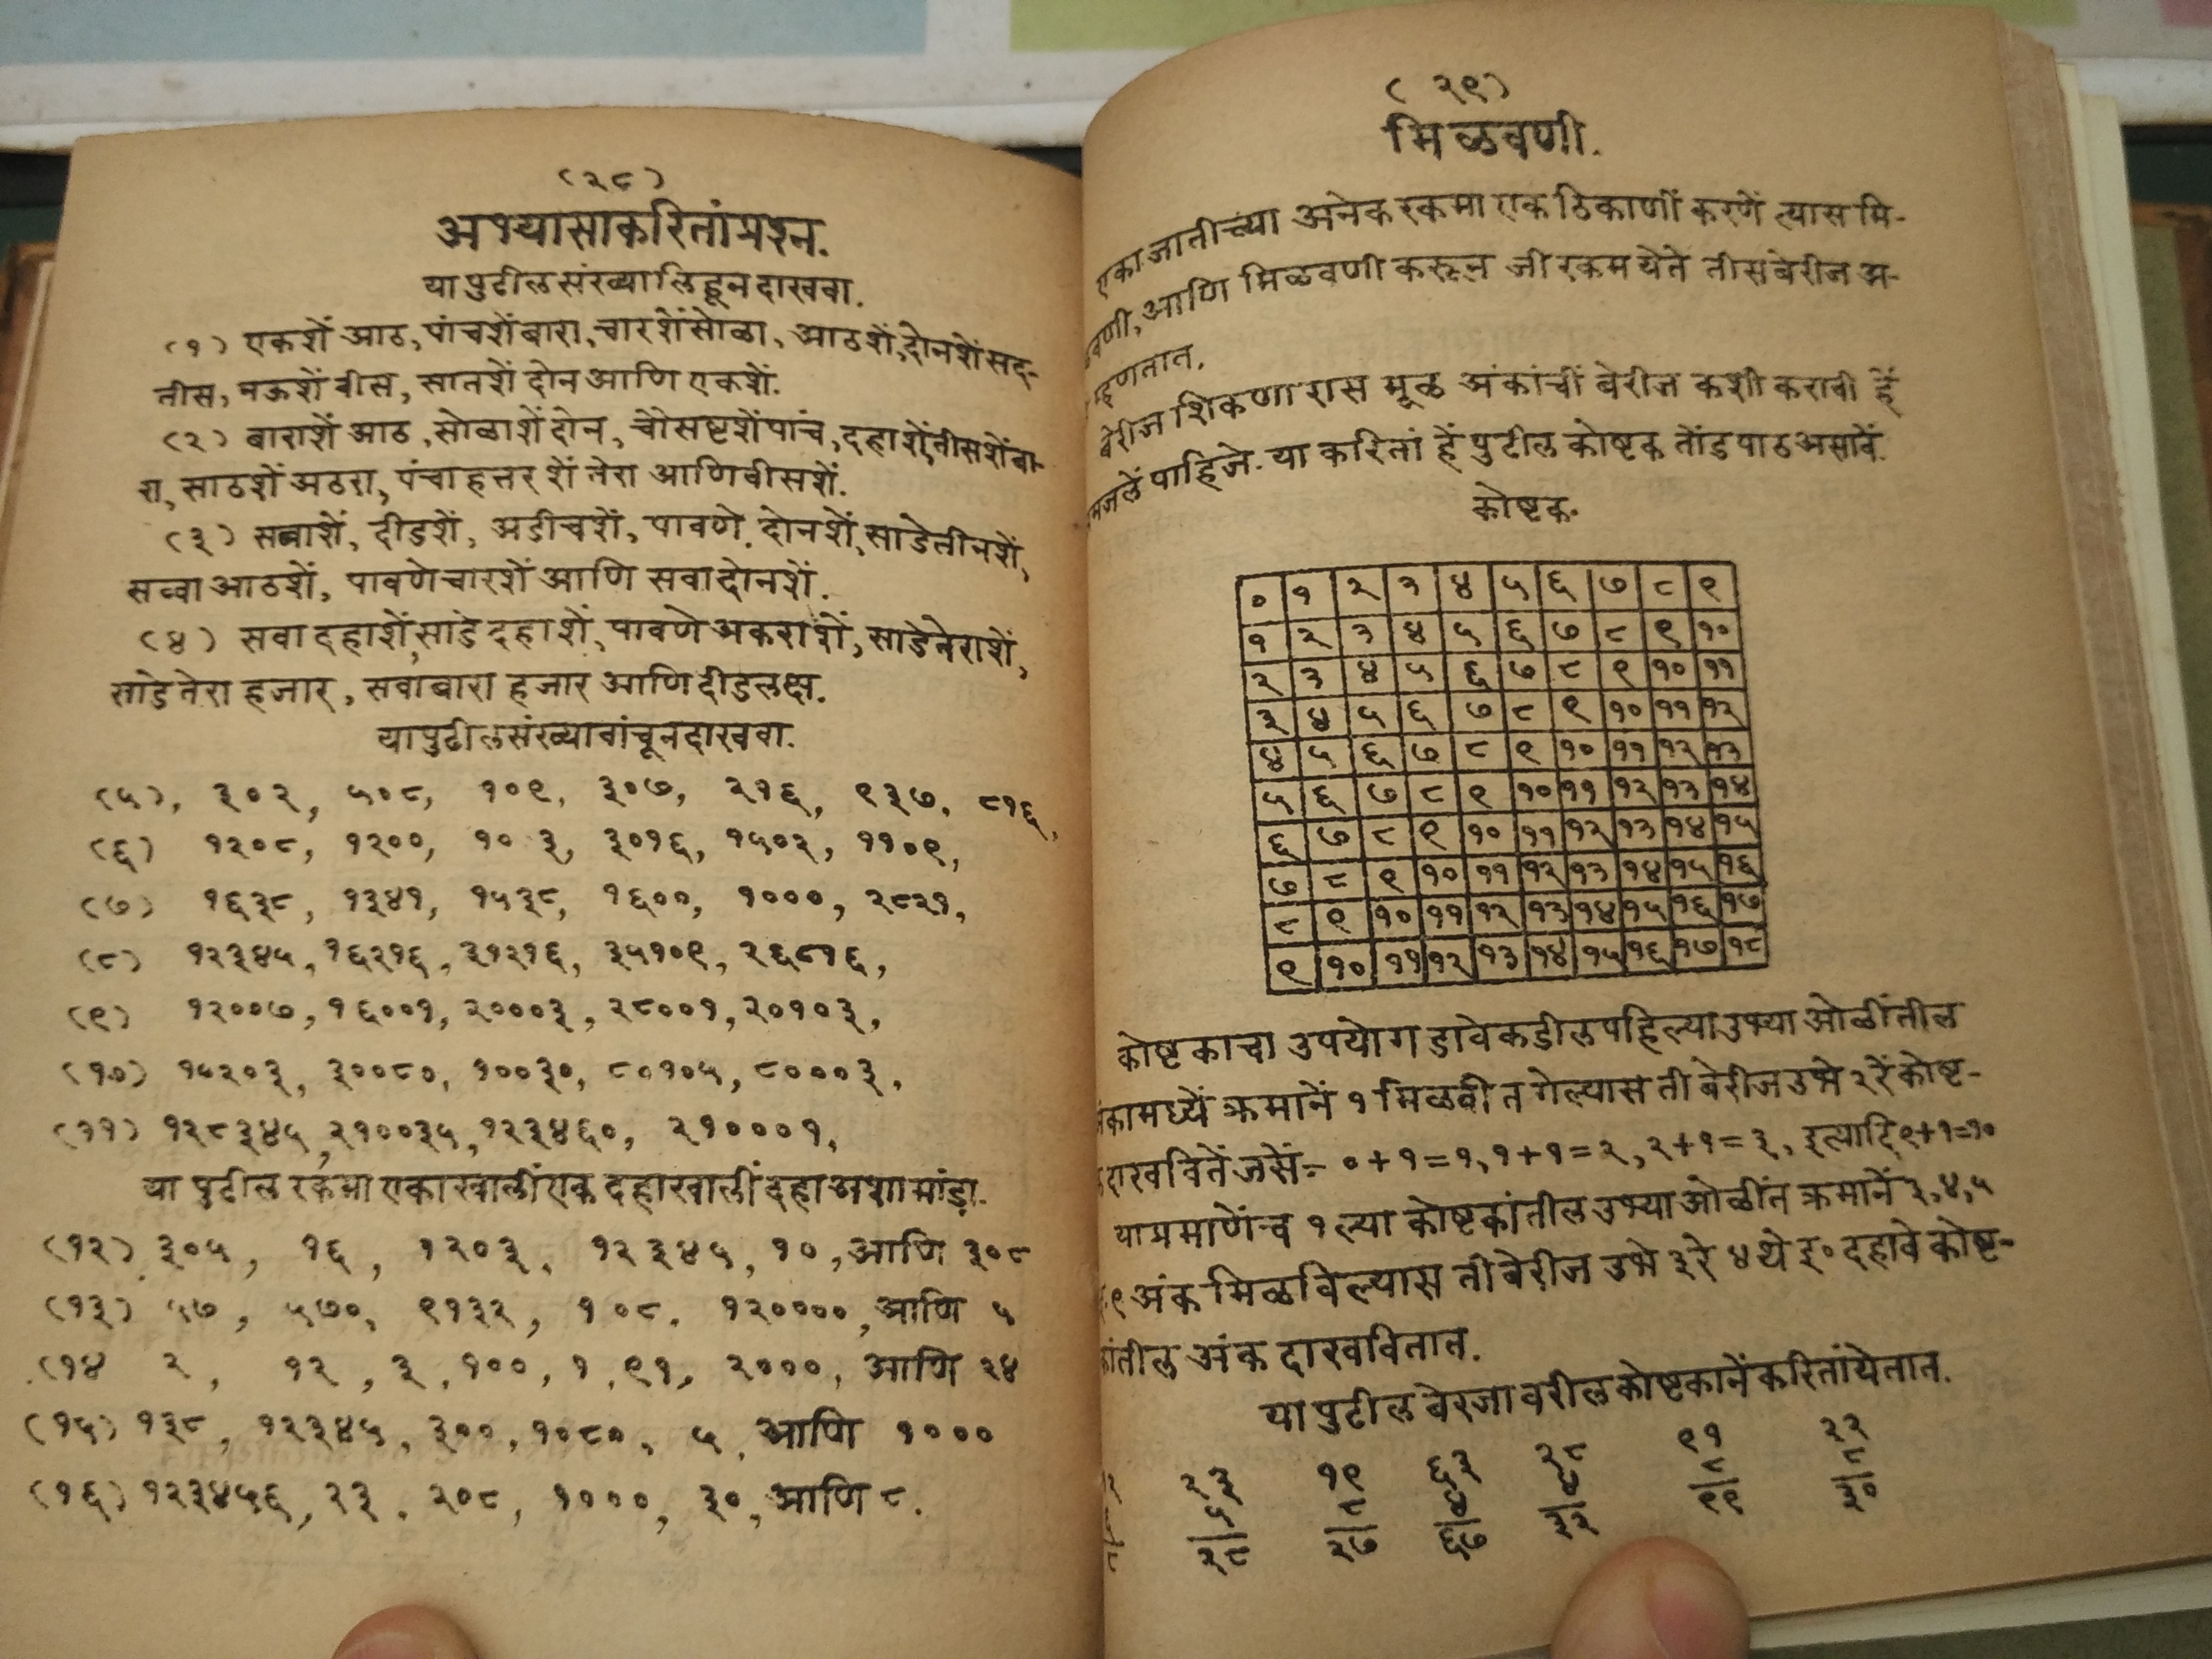 (२८)
अभ्यासाकरितां प्रश्न.
या पुढील संख्या लिहून दाखवा.
(१) एकशें आठ, पांचशें बारा, चारशें सोळा, आठशें, दोनशें सद-
तीस, नऊशें वीस, सातशें दोन आणि एकशें.
(२) बाराशें आठ, सोळाशें दोन, चौसष्टशें पांच, दहाशें, तीसशें बा-
रा, साठशें अठरा, पंचाहत्तरशें तेरा आणि वीसशें.
(३) सव्वाशें, दीडशें, अडीचशें, पावणे दोनशें, साडेतीनशें,
सव्वा आठशें, पावणेचारशें आणि सवादोनशें.
(४) सवा दहाशें, साडे दहाशें, पावणे अकराशें, साडेतेराशें,
साडेतेरा हजार, सवाबारा हजार आणि दीडलक्ष.
या पुढील संख्या वांचून दाखवा.
(५), ३०२, ५०८, १०९, ३०७, २१६, ९३७, ८१६,
(६) १२०८, १२००, १०३, ३०१६, १५०३, ११०९,
(७) १६३८, १३४१, १५३८, १६००, १०००, २८२१,
(८) १२३४५, १६२१६, ३१२१६, ३५१०९, २६८१६,
(९) १२००७, १६००१, २०००३, २८००१, २०१०३,
(१०) १५२०३, ३००८०, १००३०, ८०१०५, ८०००३,
(११) १२८३४५, २१००३५, १२३४६०, २१०००१,
या पुढील रकमा एकाखालीं एक दहाखालीं दहा अशा मांडा.
(१२) ३०५, १६, १२०३, १२३४५, १०, आणि ३०८
(१३) ५७, ५७०, ९१३२, १०८. १२००००, आणि ५
(१४ २, १२, ३, १००, १, ९१, २०००, आणि २४
(१५) १३८, १२३४५, ३००, १०८०, ५, आणि १०००
(१६) १२३४५६, २३, २०८, १०००, ३०, आणि ८.
(२९)
मिळवणी.
एका जातीच्या अनेक रकमा एक ठिकाणीं करणें त्यास मि-
वणी, आणि मिळवणी करून जी रकम येते तीस बेरीज अ-
म्हणतात.
बेरीज शिकणारास मूळ अंकांचीं बेरीज कशी करावी हें
मजलें पाहिजे. या करितां हें पुढील कोष्टक तोंडपाठ असावें.
कोष्टक.
० १ २ ३ ४ ५ ६ ७ ८ ९
१ २ ३ ४ ५ ६ ७ ८ ९ १०
२ ३ ४ ५ ६ ७ ८ ९ १० ११
३ ४ ५ ६ ७ ८ ९ १० ११ १२
४ ५ ६ ७ ८ ९ १० ११ १२ १३
५ ६ ७ ८ ९ १० ११ १२ १३ १४
६ ७ ८ ९ १० ११ १२ १३ १४ १५
७ ८ ९ १० ११ १२ १३ १४ १५ १६
८ ९ १० ११ १२ १३ १४ १५ १६ १७
९ १० ११ १२ १३ १४ १५ १६ १७ १८
कोष्टकाचा उपयोग डावेकडील पहिल्या उभ्या ओळींतील
कामध्यें क्रमानें १ मिळवीत गेल्यास ती बेरीज उभे २ रें कोष्ट-
दाखवितें जसें:- ०+१=१, १+१=२, २+१=३, इत्यादि ९+१=१०
याप्रमाणेंच १ ल्या कोष्टकांतील उभ्या ओळींत क्रमानें ३,४,५
९ अंक मिळविल्यास ती बेरीज उभे ३ रे ४ थे इ० दहावे कोष्ट-
कांतील अंक दाखवितात.
या पुढील बेरजा वरील कोष्टकानें करितां येतात.
२३ १९ ६३ २८ ९१ २२
५ ८ ४ ४ ८ ८
२८ २७ ६७ ३२ ९९ ३०